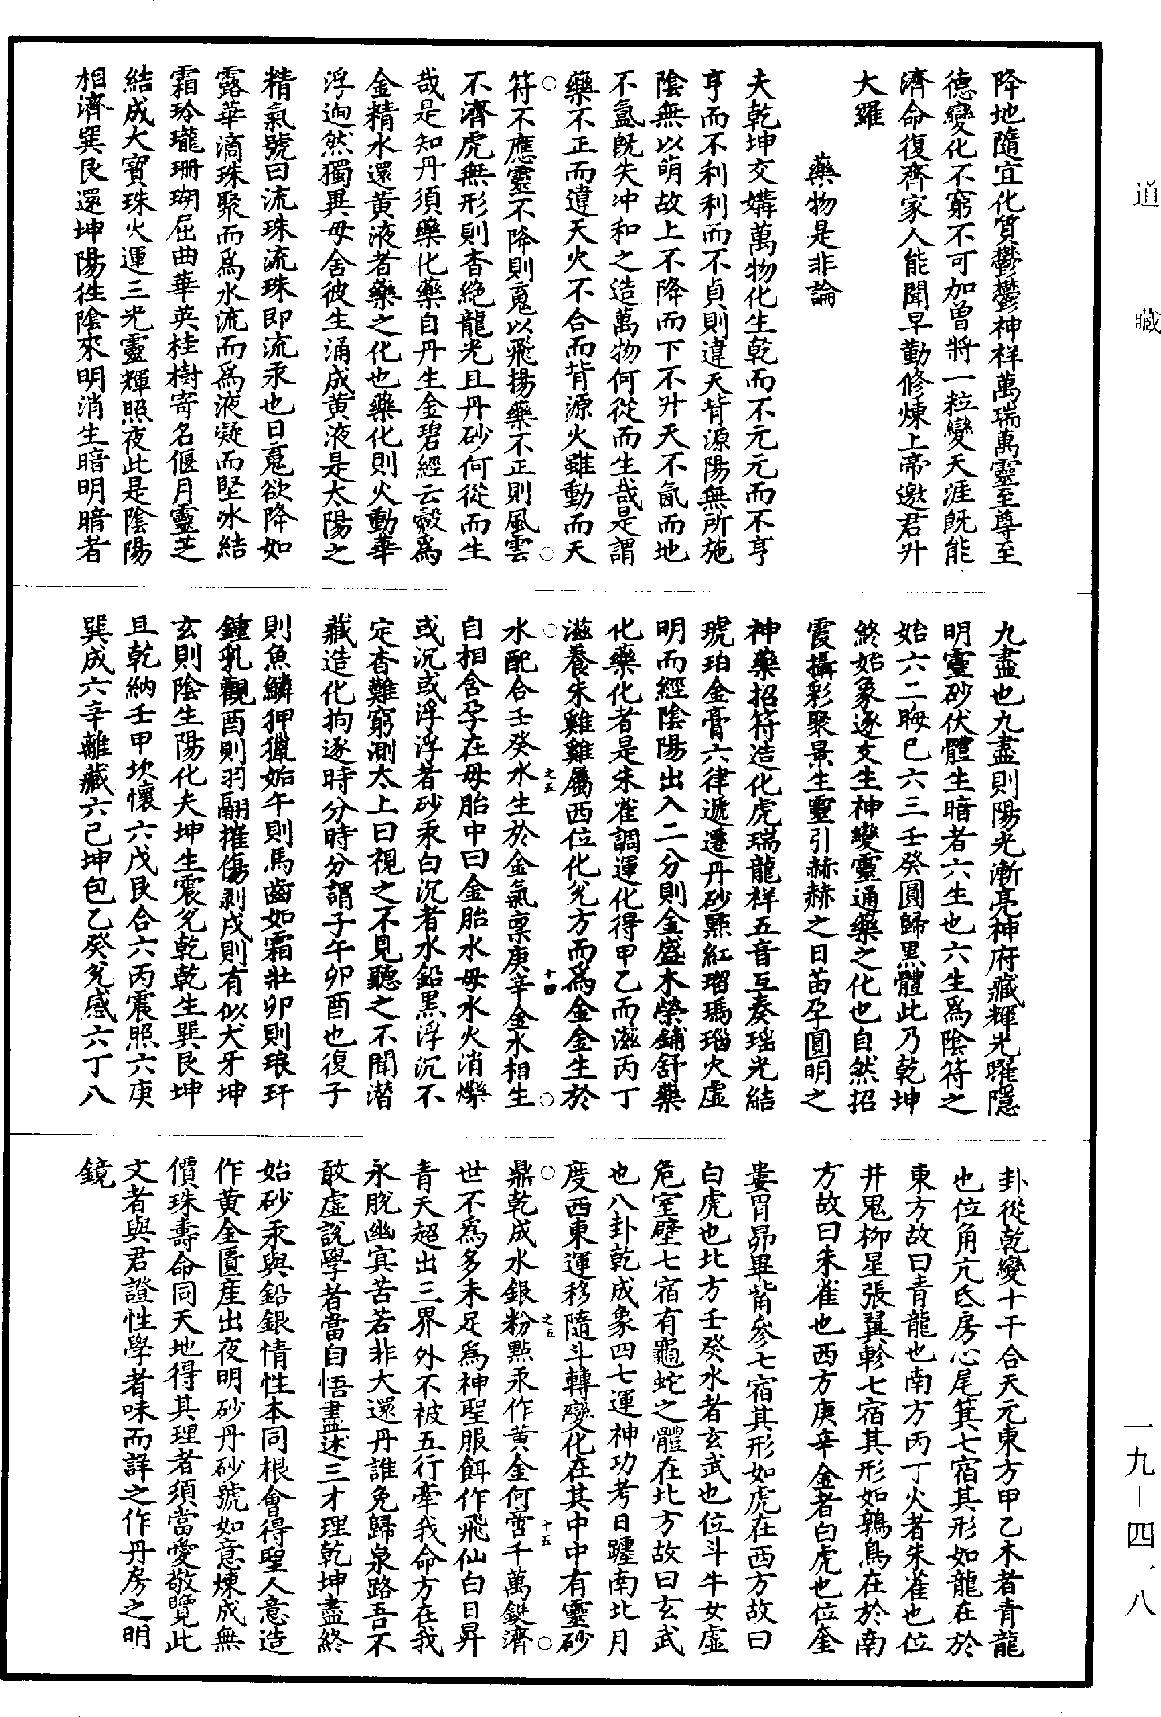 道藏
降地隨宜化質鬱鬱神祥萬瑞萬靈至尊至
德變化不窮不可加曾將一粒變天涯既能
濟命復齊家人能聞早勤修煉上帝邀君升
大羅
藥物是非論
夫乾坤交媾萬物化生乾而不元元而不亨
亨而不利利而不貞則違天背源陽無所施
陰無以萌故上不降而下不升天不氤而地
不氳既失沖和之造萬物何從而生哉是謂
藥不正而違天火不合而背源火雖動而天
符不應靈不降則䰟以飛揚藥不正則風雲
不濟虎無形則杳絶龍光且丹砂何從而生
哉是知丹須藥化藥自丹生金碧經云穀為
金精水還黄液者藥之化也藥化則火動華
浮迥然獨異母舍彼生涌成黄液是太陽之
精氣號曰流珠流珠即流汞也日䰟欲降如
露華滴珠聚而爲水流而爲液凝而堅氷結
霜玲瓏珊瑚屈曲華英桂樹寄名偃月靈芝
結成大寳珠火運三光靈輝照夜此是陰陽
相濟巽艮還坤陽往陰來明消生暗明暗者
九盡也九盡則陽光漸亮神府藏輝光躍隱
明靈砂伏體生暗者六生也六生爲陰符之
始六二晦巳六三壬癸圓歸黒體此乃乾坤
終始象逐支生神變靈通藥之化也自然招
霞攝彩聚景生靈引赫赫之日苗孕圓明之
神藥招符造化虎瑞龍祥五音互奏瑶光結
琥珀金膏六律遞遷丹砂㸃紅瑠瑪瑙火虚
明而經陰陽出入二分則金盛木榮鋪舒藥
化藥化者是朱雀調運化得甲乙而滋丙丁
滋養朱雞雞屬西位化兑方而爲金金生於
水配合壬癸水生於金氣禀庚辛金水相生
自相含孕在母胎中曰金胎水母水火消爍
或沉或浮浮者砂汞白沉者水鉛黒浮沉不
定杳難窮測太上曰視之不見聽之不聞潛
藏造化拘逐時分時分謂子午卯酉也復子
則魚鱗狎獵姤午則馬齒如霜壯卯則琅玕
鍾乳觀酉則羽翮摧傷剥戌則有似犬牙坤
玄則陰生陽化夫坤生震兑乾乾生巽艮坤
且乾納壬甲坎懷六戊艮合六丙震照六庚
巽成六辛離藏六己坤包乙癸兑感六丁八
卦從乾變十干合天元東方甲乙木者青龍
也位角亢氐房心尾箕七宿其形如龍在於
東方故曰青龍也南方丙丁火者朱雀也位
井鬼柳星張翼軫七宿其形如鶉鳥在於南
方故曰朱雀也西方庚辛金者白虎也位奎
婁胃昴畢觜參七宿其形如虎在西方故曰
白虎也北方壬癸水者玄武也位斗牛女虚
危室壁七宿有龜蛇之體在北方故曰玄武
也八卦乾成象四七運神功考日躔南北月
度西東運移隨斗轉變化在其中中有靈砂
鼎乾成水銀粉㸃汞作黄金何啻千萬鋌濟
世不爲多未足爲神聖服餌作飛仙白日昇
青天超出三界外不被五行牽我命方在我
永脱幽㝠苦若非大還丹誰免歸泉路吾不
敢虚説學者當自悟盡述三才理乾坤盡終
始砂汞與鉛銀情性本同根會得聖人意造
作黄金匱産出夜明砂丹砂號如意煉成無
價珠壽命同天地得其理者須當愛敬覽此
文者與君證性學者味而詳之作丹房之明
鏡
之五
十四
之五
十五
一九—四一八